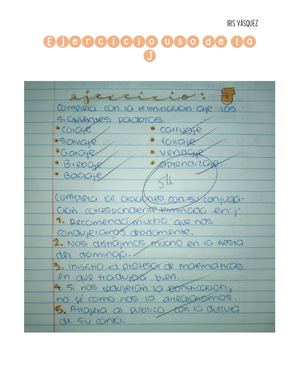 IRIS VÁSQUEZ
Ejercicio uso de la
J
ejercicio: J
Completa con la terminación aje los
siguientes palabras.
• Coraje • carruaje
• Salvaje • follaje
• Garaje • vendaje
• Blindaje • aprendizaje
• Bagaje
Completa las oraciones con su conjuga-
ción correspondiente terminada en j.
1. Recomendó mucho que nos
condujéramos dredamente.
2. Nos distrajimos mucho en la fiesta
del domingo.
3. Insistió el profesor de matematicas
en que tradujas bien.
4. Si nos redujeran la
no sé como nos la arreglaríamos.
5. Atrajera al publico con la dulzura
de su canto.